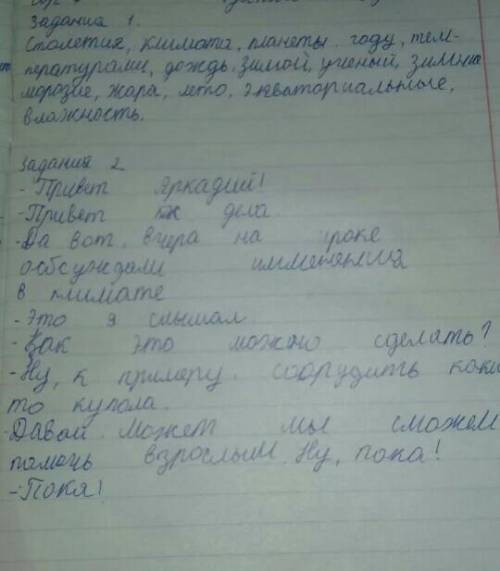 Задания 1.
Столетия, климата, планеты, году, тем-
пературами, дождь, зимой, ученый, зимние
морозие, жара, лето, экваториальные,
влажность.
Задания 2
- Привет Яркадий!
- Привет как дела
- Да вот, вчера на уроке
обсуждали иммененния
в климате
- Это я слышал
- Как это можно сделать?
- Ну, к примеру. соорудить каки
то купола.
Давай может мы сможем
помочь взрослым. Ну, пока!
- Покя!